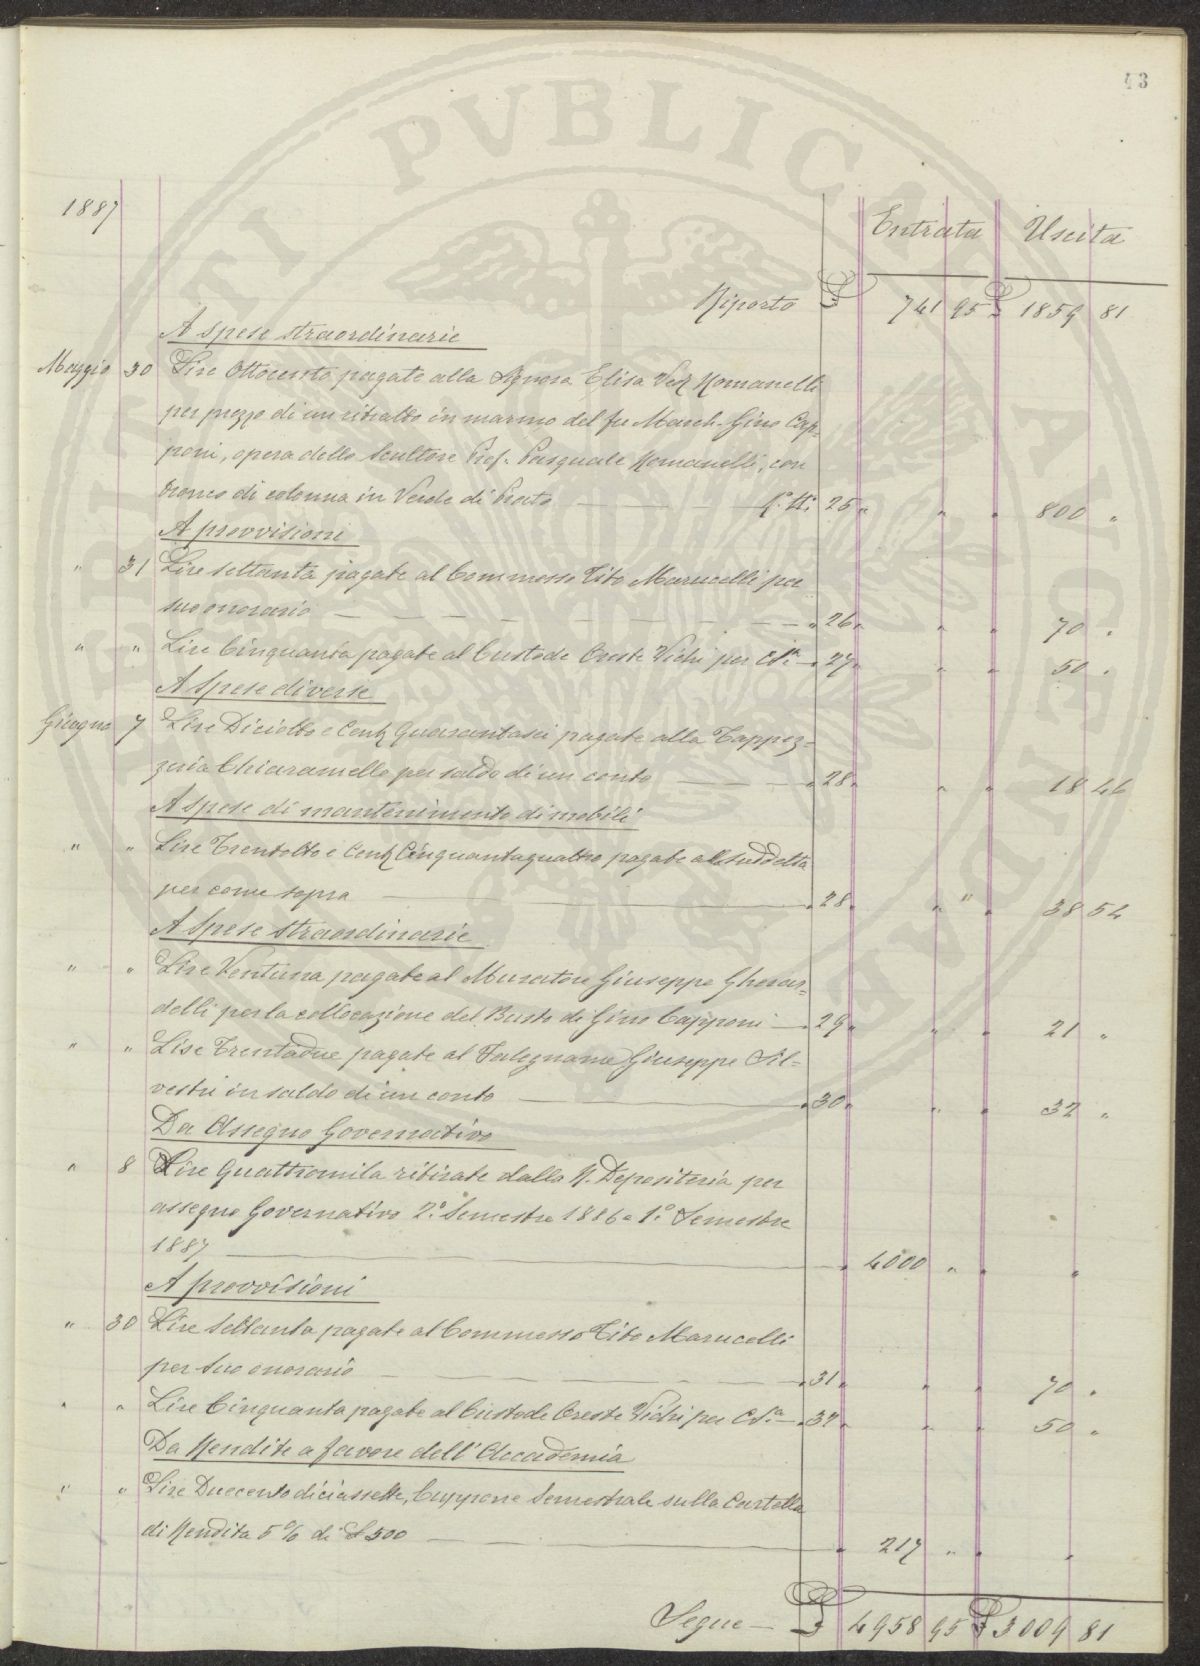 43
1887
Entrata Uscita
Riporto £ 741 95 £ 1859 81
A spese straordinarie
Maggio 30 Lire Ottocento pagate alla Signora Elisa Ved Romanelli
per prezzo di un ritratto in marmo del fu March. Gino Cap=
poni, opera dello Scultore Prof. Pasquale Romanelli, con
tronco di colonna in Verde di Prato — — — 25 " " " 800 "
A provvisioni
" 31 Lire settanta pagate al Commesso Tito Marucelli per
suo onorario — — — " 26 " " " 70 "
" " Lire Cinquanta pagate al Custode Oreste Vichi per Cs.ª — " 27 " " " 50 "
A Spese diverse
Giugno 7 Lire Diciotto e Cent Quarantasei pagate alla Tappez=
zeria Chiaramello per saldo di un conto — — " 28 " " " 18 46
A spese di mantenimento di mobili
" " Lire Trentotto e Cent Cinquantaquattro pagate alla suddetta
per come sopra — " 28 " " " 38 54
A Spese straordinarie
" " Lire Ventuna pagate al Muratore Giuseppe Gherar=
delli per la collocazione del Busto di Gino Capponi — " 29 " " " 21 "
" " Lire Trentadue pagate al Falegname Giuseppe Sil=
vestri in saldo di un conto — " 30 " " " 32 "
Da Assegno Governativo
" 8 Lire Quattromila ritirate dalla R. Depositeria per
assegno Governativo 2.º Semestre 1886 e 1.º Semestre
1887 — " 4000 " " "
A provvisioni
" 30 Lire Settanta pagate al Commesso Tito Marucelli
per suo onorario — — — " 31 " " " 70 "
" " Lire Cinquanta pagate al Custode Oreste Vichi per Cs.ª — " 32 " " " 50 "
Da Rendite a favore dell'Accademia
" " Lire Duecentodiciassette, Cuppone Semestrale sulla Cartella
di Rendita 5% di £ 500 — " 217 " " "
Segue — £ 4958 95 £ 3009 81